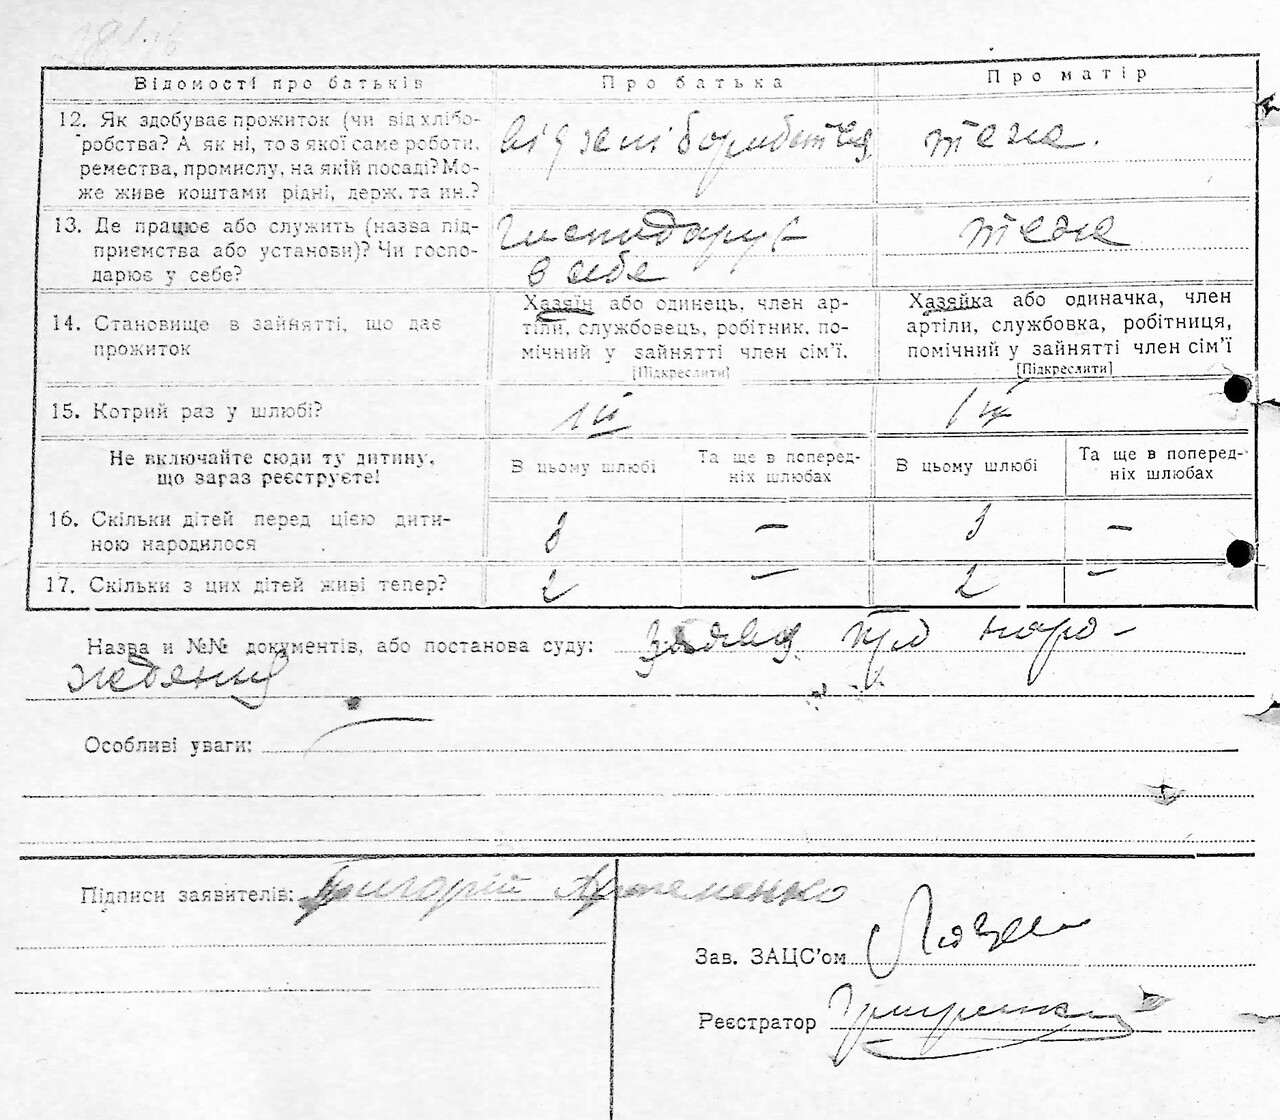 Відомості про батьків
Про батька
Про матір
12. Як здобуває прожиток (чи від хлібо-
робства? А як ні, то з якої саме роботи,
ремества, промислу, на якій посаді? Мо-
же живе коштами рідні, держ. та ин.?
від
теже.
13. Де працює або служить (назва під-
приємства або установи)? Чи госпо-
дарює у себе?
господарує
в себе
теже
14. Становище в зайнятті, що дає
прожиток
Хазяїн або одинець, член ар-
тіли, службовець, робітник, по-
мічний у зайнятті член сім'ї.
[Підкреслити]
Хазяйка або одиначка, член
артіли, службовка, робітниця,
помічний у зайнятті член сім'ї
[Підкреслити]
15. Котрий раз у шлюбі?
1й
1й
Не включайте сюди ту дитину,
що зараз реєструєте!
В цьому шлюбі
Та ще в поперед-
ніх шлюбах
В цьому шлюбі
Та ще в поперед-
ніх шлюбах
16. Скільки дітей перед цією дити-
ною народилося
3
–
3
–
17. Скільки з цих дітей живі тепер?
2
–
2
–
Назва и №№ документів, або постанова суду: заява про наро-
ждения
Особливі уваги:
Підписи заявителів: Григорій Артеменко
Зав. ЗАЦС'ом
Реєстратор